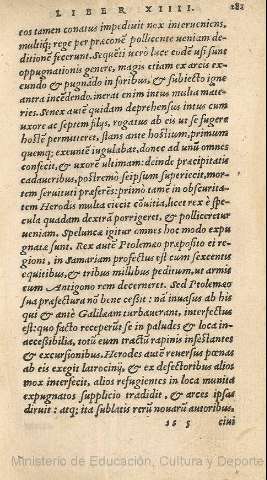 LIBER XIIII. 281
eos tamen conatus impediuit nox interueniens,
multiq; rege per præconẽ pollicente ueniam de-
ditionẽ fecerunt. Sequẽti uero luce eodẽ usi sunt
oppugnationis genere, magis etiam ex arcis ex-
cundo & pugnãdo in foribus, & subiecto igne
antra incẽdendo. inerat enim intus multa mate-
ries. Senex autẽ quidam deprehensus intus cum
uxore ac septem filijs, rogatus ab eis ut se fugere
ad hostẽ permitteret, stans ante hostium, primum
quemq; exeuntẽ iugulabat, donec ad unũ omnes
confecit, & uxorẽ ultimam: deinde præcipitatis
cadaueribus, postremò seipsum superiecit, mor-
tem seruituti præferẽs: primò tamẽ in obscurita-
tem Herodis multa eiecit cõuitia, licet rex è spe-
cula quadam dextrã porrigeret, & polliceretur
ueniam. Speluncæ igitur omnes hoc modo expu
gnatæ sunt. Rex autẽ Ptolemæo præposito ei re-
gioni, in Samariam profectus est cum sexcentis
equitibus, & tribus millibus peditum, ut armis
cum Antigono rem decerneret. Sed Ptolemæo
sua præfectura nõ bene ceßit: nã inuasus ab his
qui & ante Galilæam turbauerant, interfectus
est: quo facto receperũt se in paludes & loca in-
acceßibilia, totũ eum tractũ rapinis infestantes
& excursionibus. Herodes autẽ reuersus pœnas
ab eis exegit latrocinij, & ex defectoribus alios
mox interfecit, alios refugientes in loca munita
expugnatos supplicio tradidit, & arces ipsas
diruit: atq; ita sublatis rerũ nouarũ autoribus,
16 5 ciui
Ministerio de Educación, Cultura y Deporte